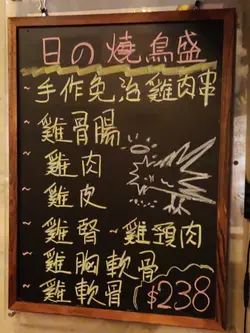 日の燒鳥盛
~手作免治雞肉串
~雞骨腸
~雞肉
~雞皮
~雞腎 ~雞頸肉
~雞胸軟骨
~雞軟骨 $238